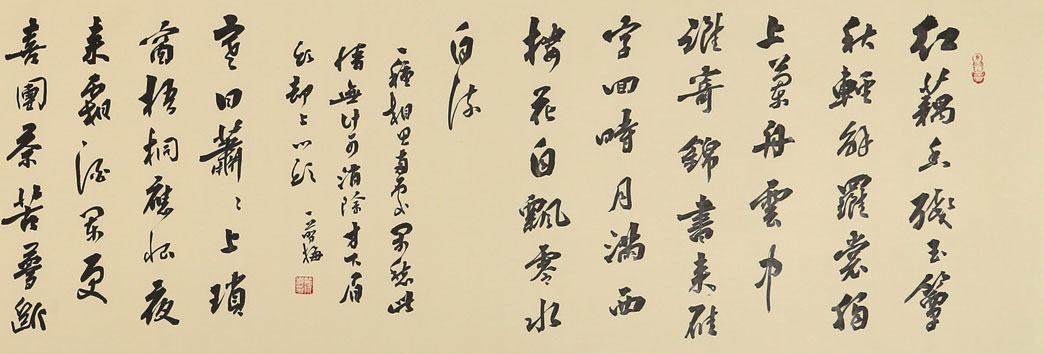 紅藕香殘玉簟
秋輕解羅裳獨
上蘭舟雲中
誰寄錦書來雁
字回時月滿西
樓花自飄零水
自流
一種相思兩處閑愁此
情無計可消除才下眉
頭却上心頭 一剪梅
寒日蕭〻上瑣
窗梧桐應恨夜
來霜酒闌更
喜團茶苦夢斷